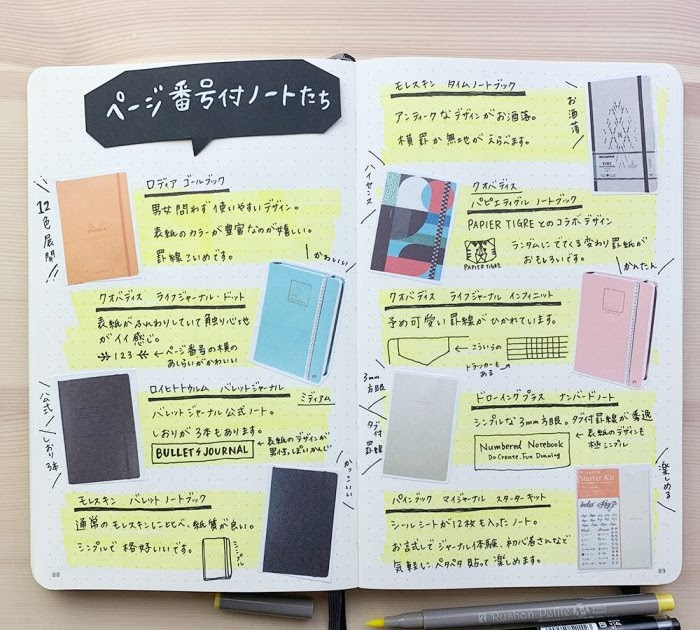 ページ番号付ノートたち
12色展開!!
ロディア ゴールブック
男女問わず使いやすいデザイン。
表紙のカラーが豊富なのが嬉しい。
罫線こいめです。
かわいい
クオバディス ライフジャーナル・ドット
表紙がふんわりしていて触り心地
がイイ感じ。
123 ← ページ番号の横の
あしらいがかわいい
公式
しおり3本
ロイヒトトゥルム バレットジャーナル
ミディアム
バレットジャーナル公式ノート。
しおりが3本もあります。
BULLET JOURNAL
← 表紙のデザインが
男性っぽいかんじ
かっこいい
モレスキン バレットノートブック
通常のモレスキンにくらべ、紙質が良い。
シンプルで格好いいです。
シンプル
88
モレスキン タイムノートブック
アンティークなデザインがお洒落。
横罫か無地がえらべます。
お洒落
ハイセンス
クオバディス
パピエティグル ノートブック
PAPIER TIGREとのコラボデザイン
PAPIER TIGRE
ランダムにでてくる変わり罫紙が
おもしろいです。
かんたん
クオバディス ライフジャーナル インフィニット
予め可愛い罫線がひかれています。
← こういうの
トラッカーも
ある
3mm
方眼
タブ付
罫線
ドローイングプラス ナンバードノート
シンプルな3mm方眼。タブ付罫線が秀逸
Numbered Notebook
Do Create. Fun Drawing
← 表紙のデザインも
極シンプル
楽しめる
パインブック マイジャーナル スターターキット
シールシートが12枚も入ったノート。
お試しでジャーナル体験、初心者さんなど
気軽にペタペタ貼って楽しめます。
Starter Kit
index
89